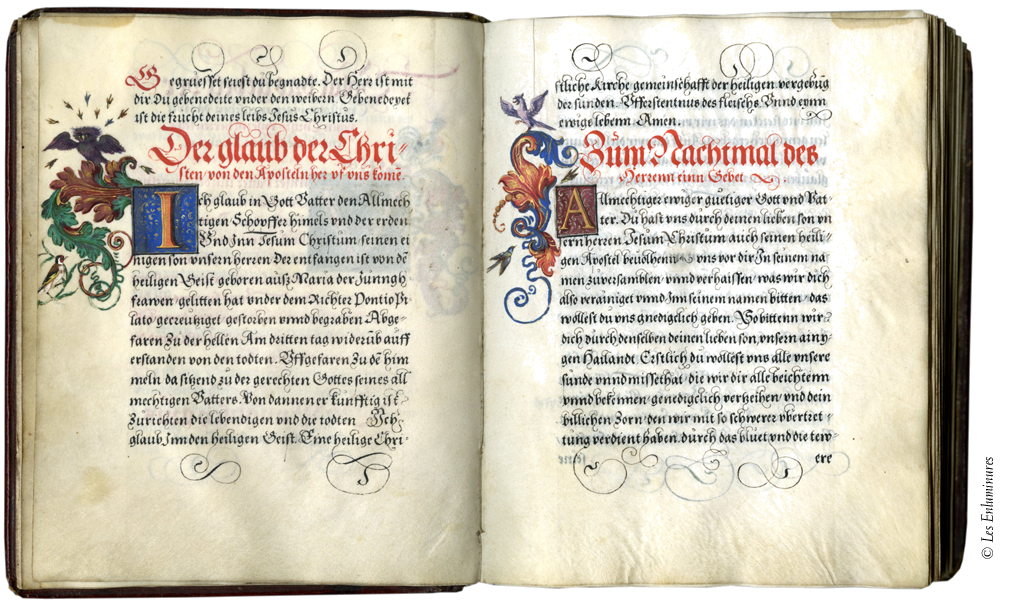 Gegruesset seiest du begnadte. Der Herr ist mit
dir Du gebenedeite vnder den weibern Gebenedeyet
ist die frucht deines leibs Jesus Christus.
Der glaub der Chri-
sten von den Aposteln her vf vns kome͂.
Ich glaub in Gott Vatter den Allmech
tigen Schopffer himels vnd der erden
Vnd Inn Jesum Christum seinen ei
nigen son vnsern herren Der entfangen ist von de͂
heiligen Geist geboren auß Maria der Junngh
frawen gelitten hat vnder dem Richter Pontio Pi
lato gecreutziget gestorben vnnd begraben Abge-
faren Zu der hellen Am dritten tag widerub auff
erstanden von den todten. Vffgefaren Zu de͂ him
meln da sitzend zu der gerechten Gottes seines all
mechtigen Vatters. Von dannen er kunfftig ist
Zurichten die lebendigen vnd die todten Ich
glaub Inn den heiligen Geist. Eine heilige Chri-
stliche Kirche gemeinschafft der heiligen vergebu͂g
der sunden. Vfferstentnus des fleischs Vnnd eynn
ewigs lebenn. Amen.
Zum Nachtmal des
Herrenn einn Gebet.
Allmechtiger ewiger guetiger Gott vnd Vat-
ter. Du hast vns durch deinen lieben son vn
sern herren Jesum Christum auch seinen heili-
gen Apostel beuolhenn vns vor dir In seinem na
men zuuersamblen vnd verhaissen was wir dich
also verainiget vnnd Inn seinem namen bitten das
wöllest du vns gnedigclich geben. So bitten wir
dich durch denselben deinen lieben son, vnsern ainy-
gen Hailandt Erstlich du wöllest vns alle vnsere
sunde vnnd missethat die wir dir alle beichtenn
vnnd bekennen genedigclich verzeihen vnd dein
billichen Zorn den wir mit so schwerer vbertret-
tung verdient haben durch das bluet vnd die tew-
ere
© Les Enluminures